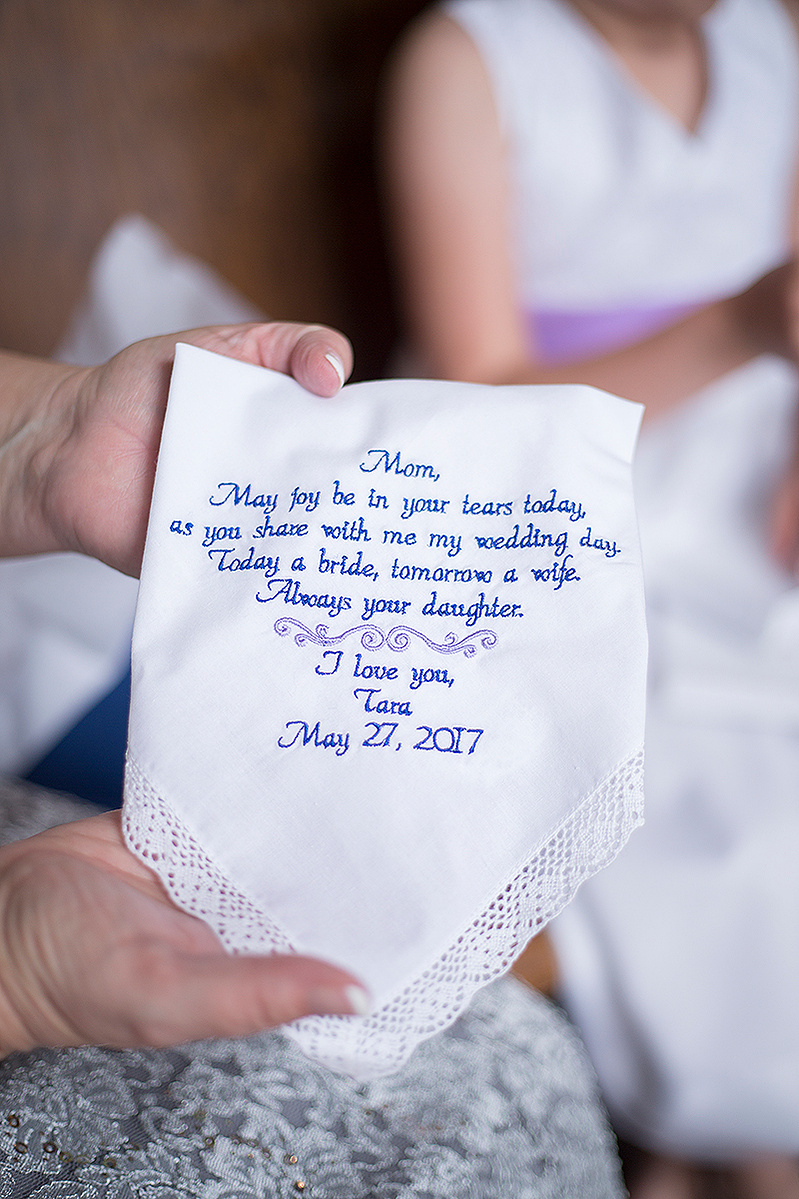 Mom,
May joy be in your tears today,
as you share with me my wedding day.
Today a bride, tomorrow a wife.
Always your daughter.
I love you,
Tara
May 27, 2017